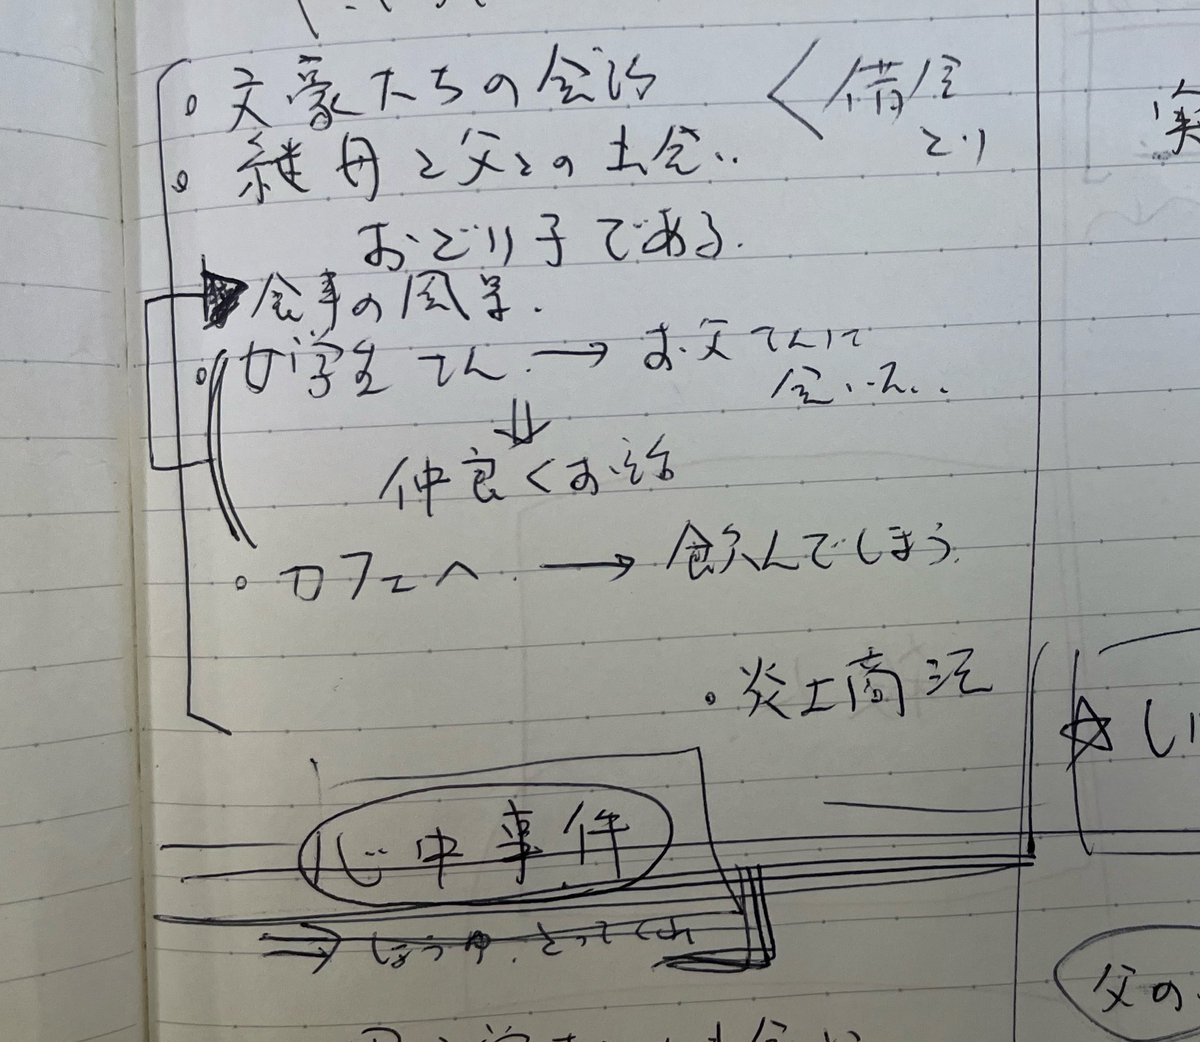 文豪たちの会話
<借金
とり
継母と父との出会い
おどり子である.
食事の風景.
女学生てん → お父てんに
会いに..
⇓
仲良くお話
カフェへ → 飲んでしまう.
・炎上商法
☆ い
心中事件
⇒ しょうゆ、とってくれ
父の
実